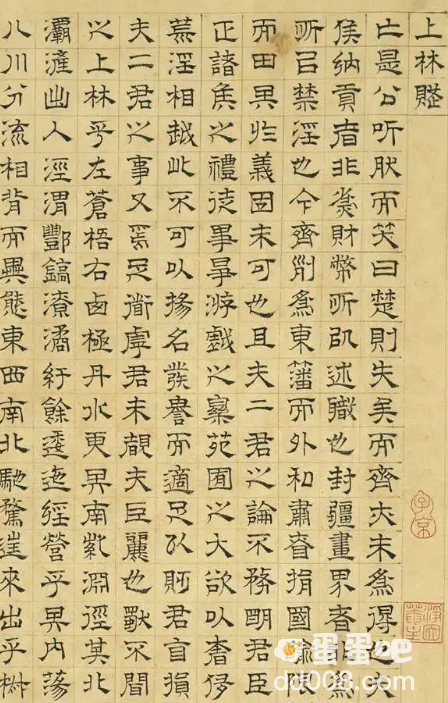 上林賦
亡是公听肰而笑曰楚則失矣而齊亦未為得也夫
侯納貢者非為財幣所以述職也封疆畫界者非為
所以禁淫也今齊列為東藩而外和肅慎捐國隃限
而田其於義固未可也且夫二君之論不務明君臣
正諸侯之禮徒事爭游戲之樂苑囿之大欲以奢侈
荒淫相越此不可以揚名發譽而適足以貶君自損
夫二君之事又焉足道虖君未覩夫巨麗也獨不聞
之上林乎左蒼梧右西極丹水更其南紫淵徑其北
灞滻出入涇渭酆鎬潦潏紆餘逶迤經營乎其內蕩
八川分流相背而異態東西南北馳騖往來出乎椒
子京
蛋蛋吧
dd008.com